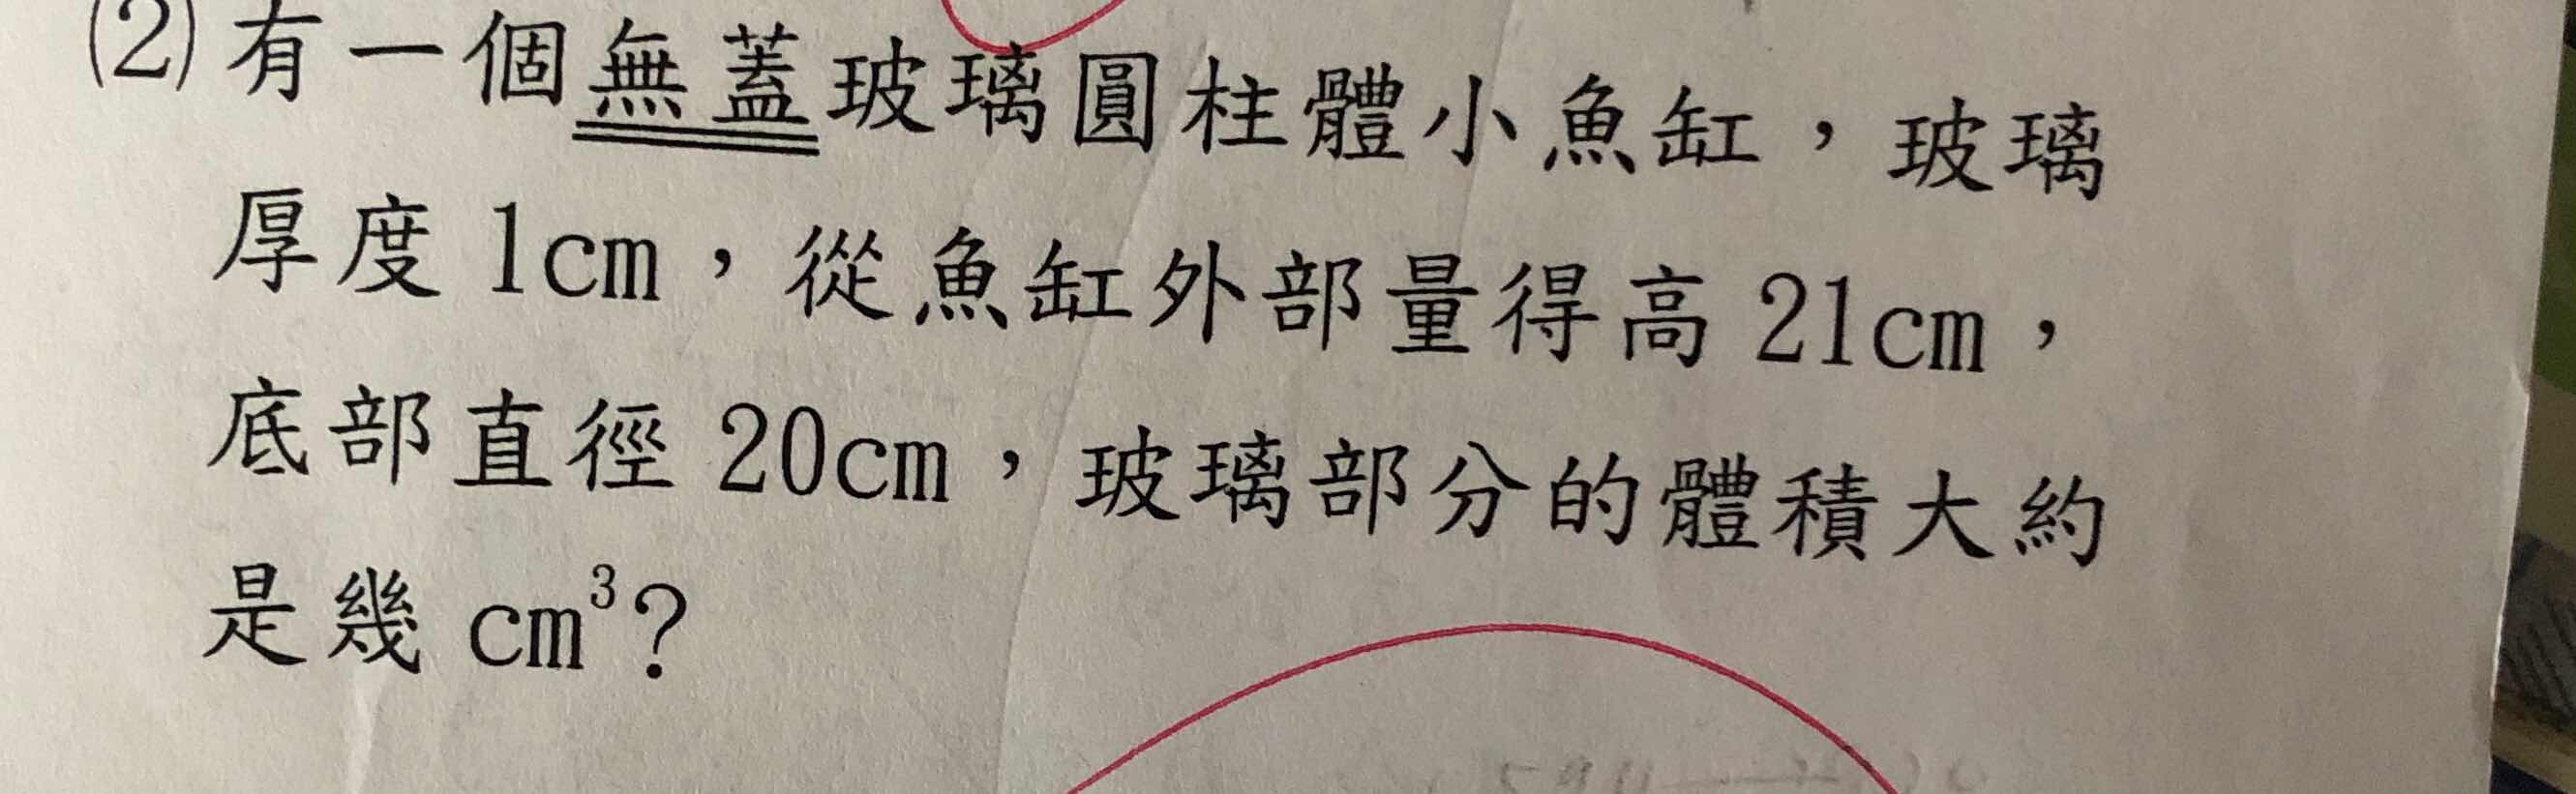 (2)有一個無蓋玻璃圓柱體小魚缸，玻璃
厚度1cm，從魚缸外部量得高21cm，
底部直徑20cm，玻璃部分的體積大約
是幾cm³？